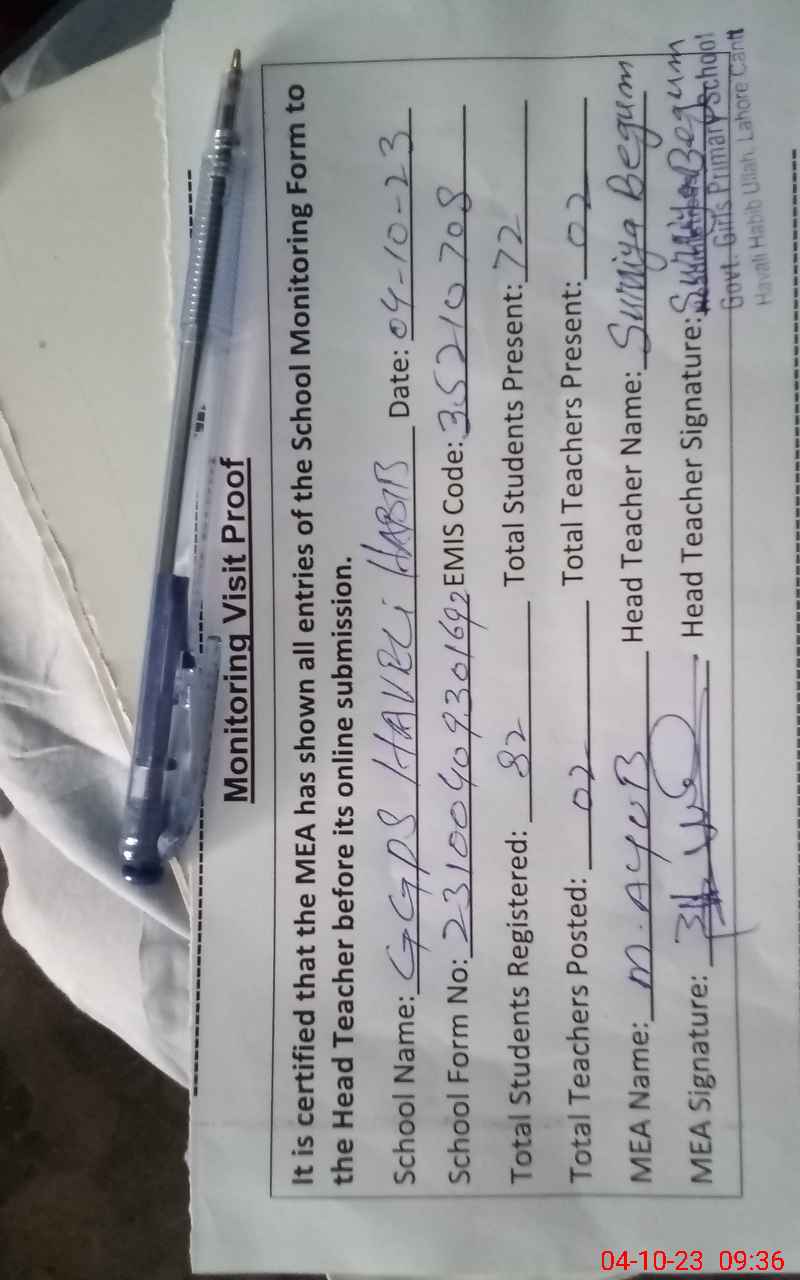 Monitoring Visit Proof
It is certified that the MEA has shown all entries of the School Monitoring Form to
the Head Teacher before its online submission.
School Name: GGPS HAVELI HABIB Date: 04-10-23
School Form No: 23100409301692 EMIS Code: 35210708
Total Students Registered: 82 Total Students Present: 72
Total Teachers Posted: 02 Total Teachers Present: 02
MEA Name: M. AYUB Head Teacher Name: Surriya Begum
MEA Signature: Head Teacher Signature: Surriya Begum
Govt. Girls Primary School
Havali Habib Ullah, Lahore Cantt
04-10-23 09:36